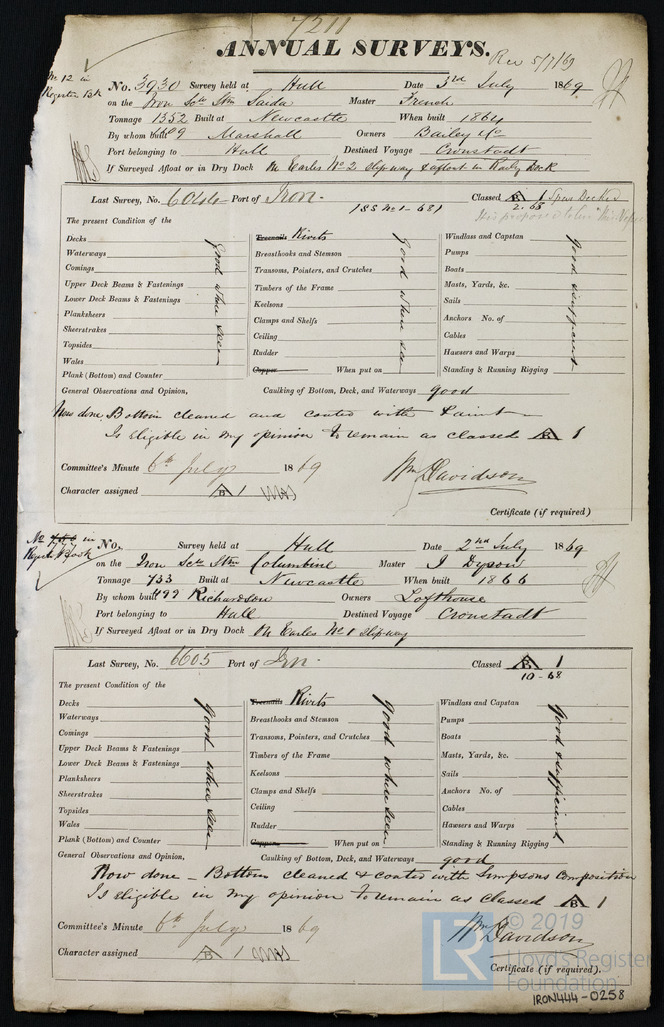 7211
ANNUAL SURVEYS.
Rec 5/7/69
No 12 in
Register Bk
No. 3930 Survey held at Hull Date 3rd July 1869
on the Iron Sctw Stm Saida Master French
Tonnage 1352 Built at Newcastle When built 1864
By whom built Marshall Owners Bailey & Co
Port belonging to Hull Destined Voyage Cronstadt
If Surveyed Afloat or in Dry Dock On Earles No 2 Slipway & afloat in Railwy Dock
Last Survey, No. Port of Iron. Classed A 1 Spar Decked
188 No 1-681 2.68
The present Condition of the
Decks Treenails Rivits Windlass and Capstan
Waterways Breasthooks and Stemson Pumps
Comings Transoms, Pointers, and Crutches Boats
Upper Deck Beams & Fastenings Timbers of the Frame Masts, Yards, &c.
Lower Deck Beams & Fastenings Keelsons Sails
Planksheers Clamps and Shelfs Anchors No. of
Sheerstrakes Ceiling Cables
Topsides Rudder Hawsers and Warps
Wales Copper When put on Standing & Running Rigging
Plank (Bottom) and Counter
good where seen
good where seen
good & sufficient
General Observations and Opinion, Caulking of Bottom, Deck, and Waterways good
Now done Bottom cleaned and coated with Paint
Is Eligible in my opinion to remain as classed A 1
Committee's Minute 6th July 1869 Wm Davidson
Character assigned A 1
Certificate (if required)
No 777 in
Register Book
No. Survey held at Hull Date 2nd July 1869
on the Iron Sctw Stm Columbine Master J Dyson
Tonnage 733 Built at Newcastle When built 1866
By whom built Richardson Owners Lofthouse
Port belonging to Hull Destined Voyage Cronstadt
If Surveyed Afloat or in Dry Dock On Earles No 1 Slipway
Last Survey, No. 6605 Port of Iron. Classed A 1
10-68
The present Condition of the
Decks Treenails Rivits Windlass and Capstan
Waterways Breasthooks and Stemson Pumps
Comings Transoms, Pointers, and Crutches Boats
Upper Deck Beams & Fastenings Timbers of the Frame Masts, Yards, &c.
Lower Deck Beams & Fastenings Keelsons Sails
Planksheers Clamps and Shelfs Anchors No. of
Sheerstrakes Ceiling Cables
Topsides Rudder Hawsers and Warps
Wales Copper When put on Standing & Running Rigging
Plank (Bottom) and Counter
good where seen
good where seen
good & sufficient
General Observations and Opinion, Caulking of Bottom, Deck, and Waterways good
Now done - Bottom cleaned & coated with Simpsons Composition
Is eligible in my opinion to remain as classed A 1
Committee's Minute 6th July 1869 Wm Davidson
Character assigned A 1
Certificate (if required).
LR © 2019
Lloyds Register
Foundation
IRON444-0258